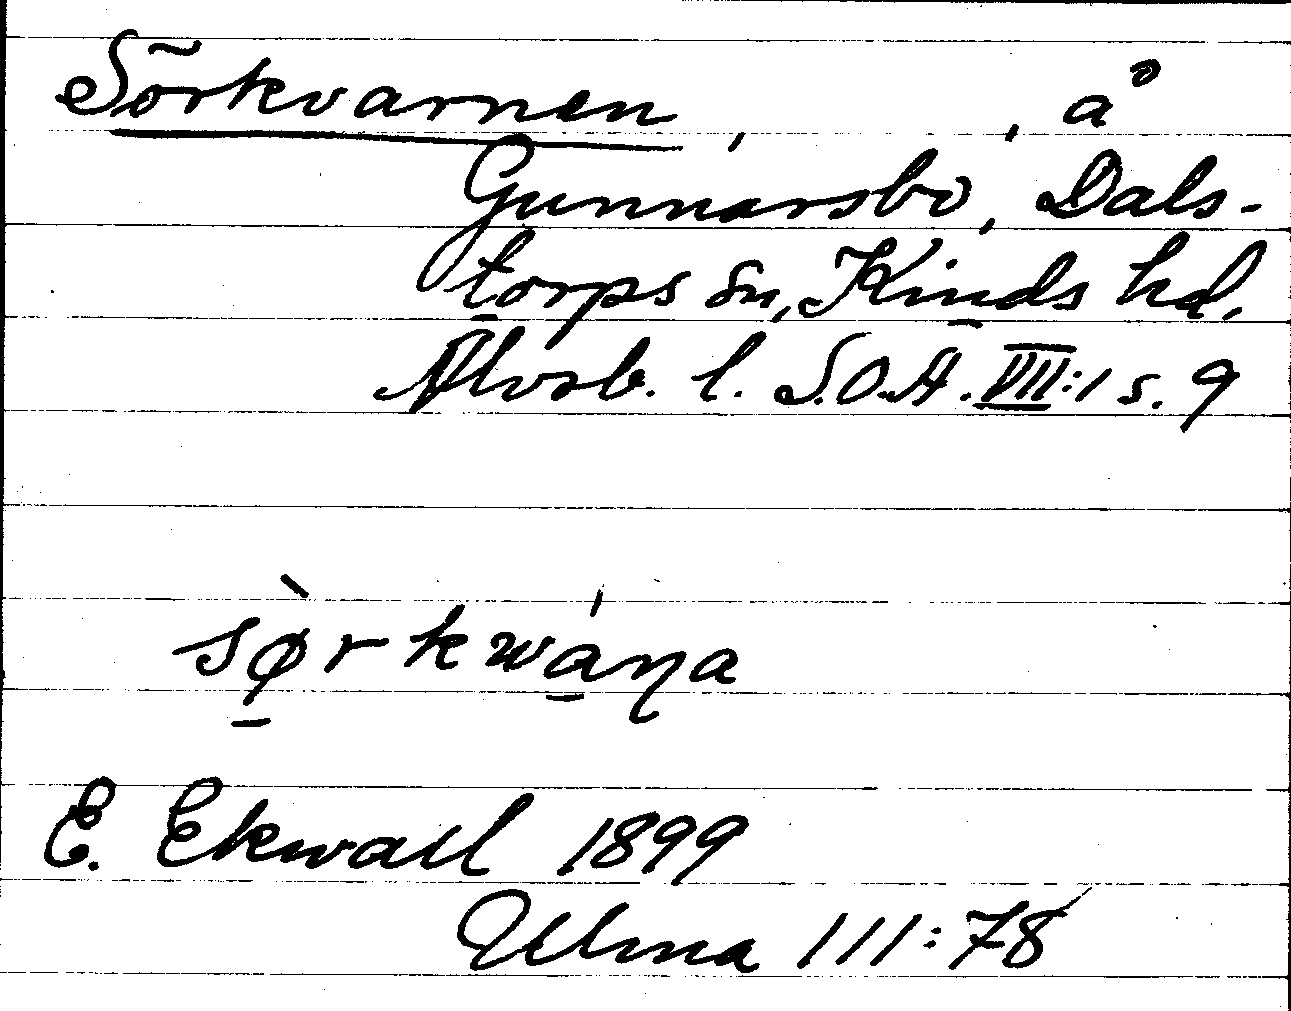 Sörkvarnen, , å
Gunnarsbo, Dals-
torps sn, Kinds hd,
Älvsb. l. S.O.Ä. VII:1 s. 9
sø̀rkwáŋa
E. Ekwall 1899
Ulma 111:78